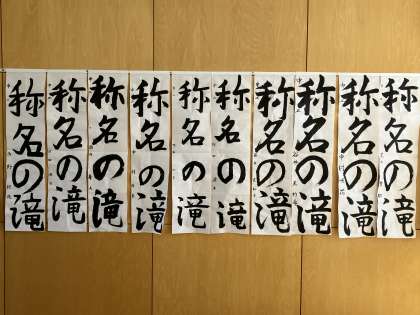 称名の滝
称名の滝
称名の滝
称名の滝
称名の滝
称名の滝
称名の滝
称名の滝
称名の滝
称名の滝